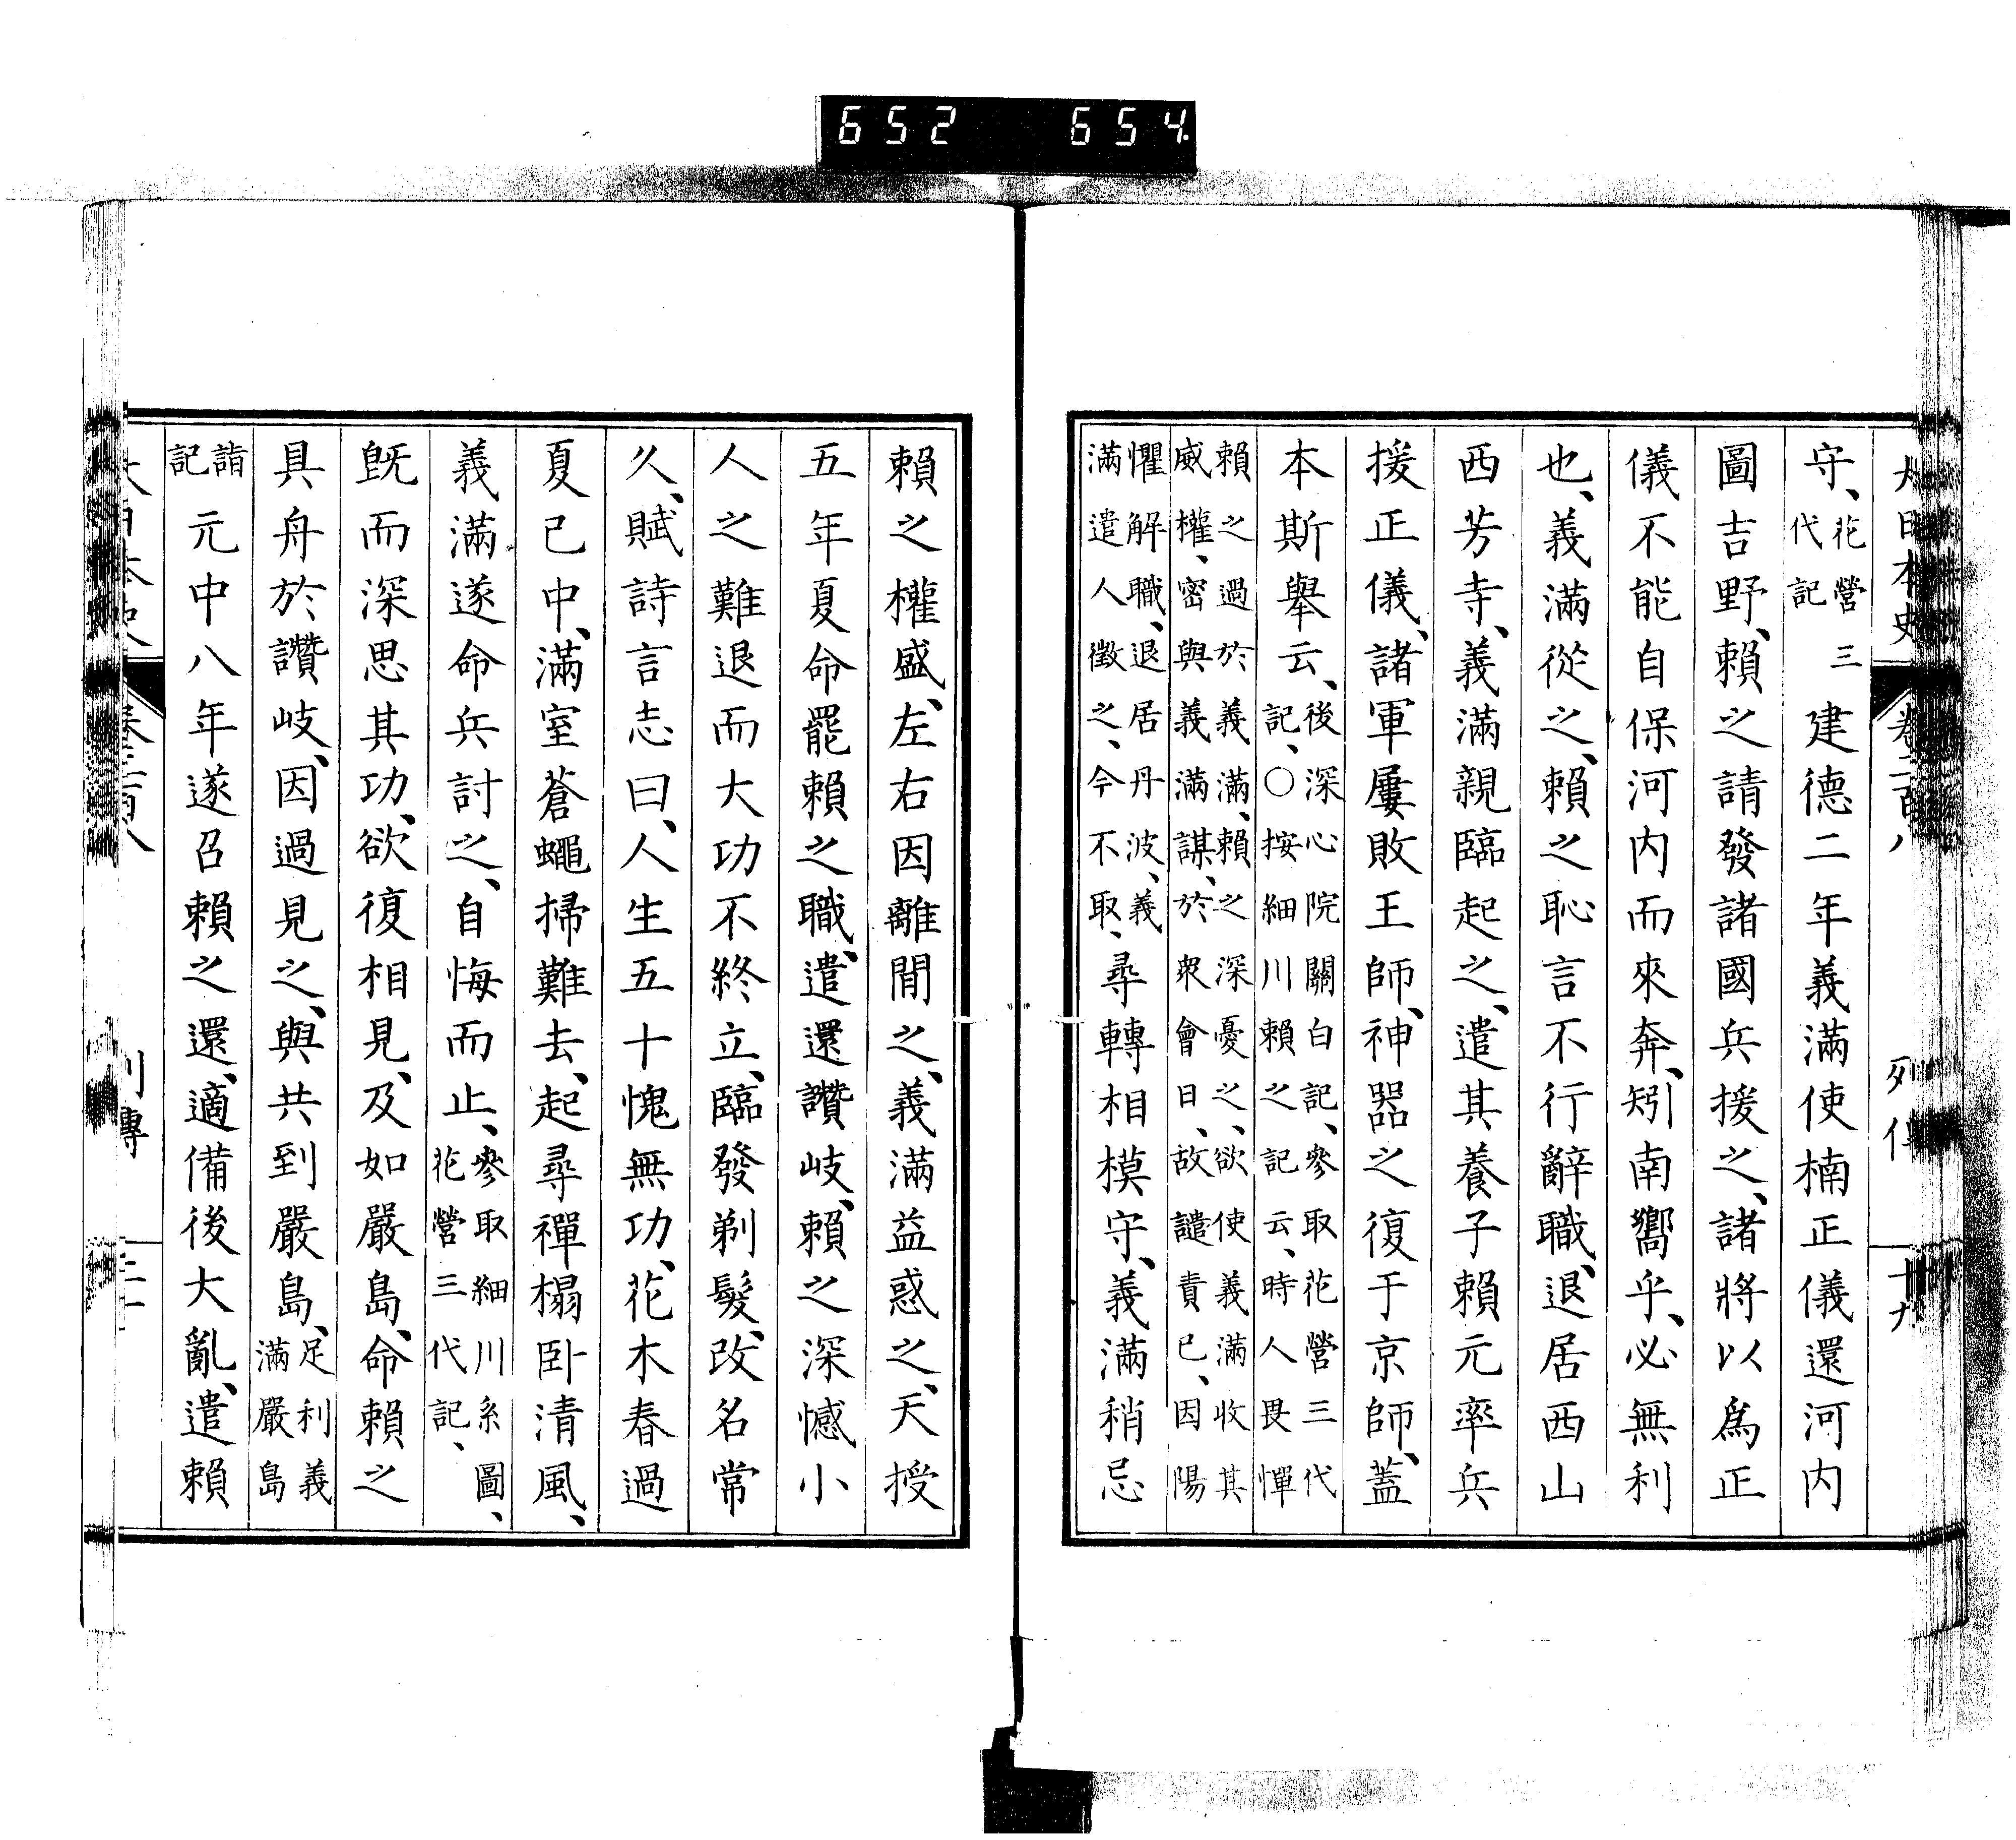 652 654
大日本史 卷二百八 列傳 十九
守、花營三代記 建德二年義滿使楠正儀還河内
圖吉野、賴之請發諸國兵援之、諸將以爲正
儀不能自保河内而來奔、矧南嚮乎、必無利
也、義滿從之、賴之恥言不行辭職、退居西山
西芳寺、義滿親臨起之、遣其養子賴元率兵
援正儀、諸軍屢敗王師、神器之復于京師、蓋
本斯舉云、後深心院關白記、參取花營三代記、○按細川賴之記云、時人畏憚
賴之過於義滿、賴之深憂之、欲使義滿收其威權、密與義滿謀、於衆會日、故譴責已、因陽
懼解職、退居丹波、義滿遣人徵之、今不取、尋轉相模守、義滿稍忌
賴之權盛、左右因離間之、義滿益惑之、天授
五年夏命罷賴之職、遣還讚岐、賴之深憾小
人之難退而大功不終立、臨發剃髮、改名常
久、賦詩言志曰、人生五十愧無功、花木春過
夏已中、滿室蒼蠅掃難去、起尋禪榻卧清風、
義滿遂命兵討之、自悔而止、參取細川系圖、花營三代記、
旣而深思其功、欲復相見、及如嚴島、命賴之
具舟於讚岐、因過見之、與共到嚴島、足利義滿嚴島
詣記 元中八年遂召賴之還、適備後大亂、遣賴
大日本史 卷二百八 列傳 二十